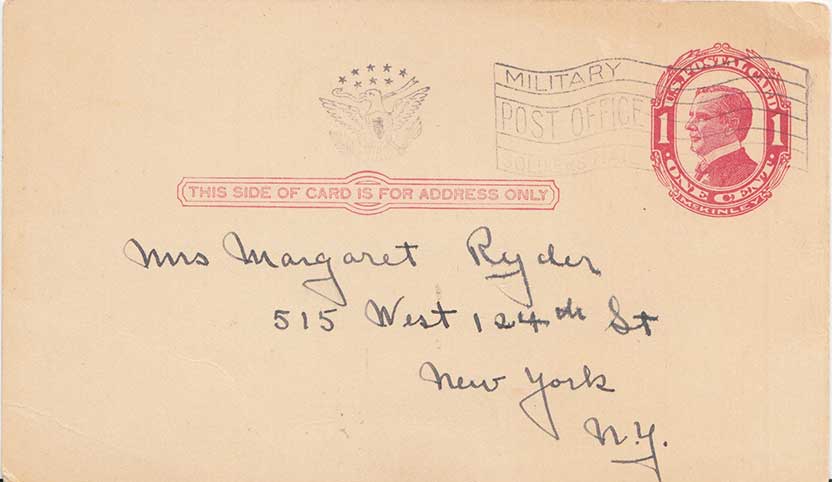 MILITARY
POST OFFICE
SOLDIERS MAIL
U.S. POSTAL CARD
1 1
ONE CENT
McKINLEY
THIS SIDE OF CARD IS FOR ADDRESS ONLY
Mrs Margaret Ryder
515 West 124th St
New York
N.Y.